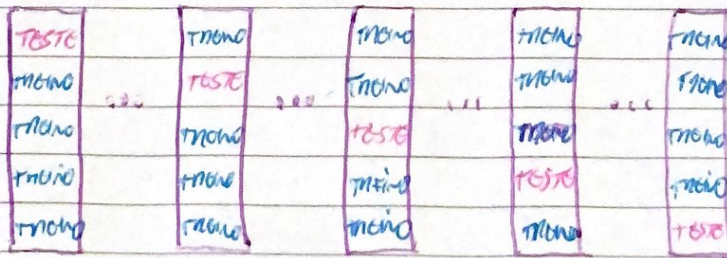 TESTE TREINO TREINO TREINO TREINO
TREINO TESTE TREINO TREINO TREINO
... ... ... ...
TREINO TREINO TESTE TREINO TREINO
TREINO TREINO TREINO TESTE TREINO
TREINO TREINO TREINO TREINO TESTE